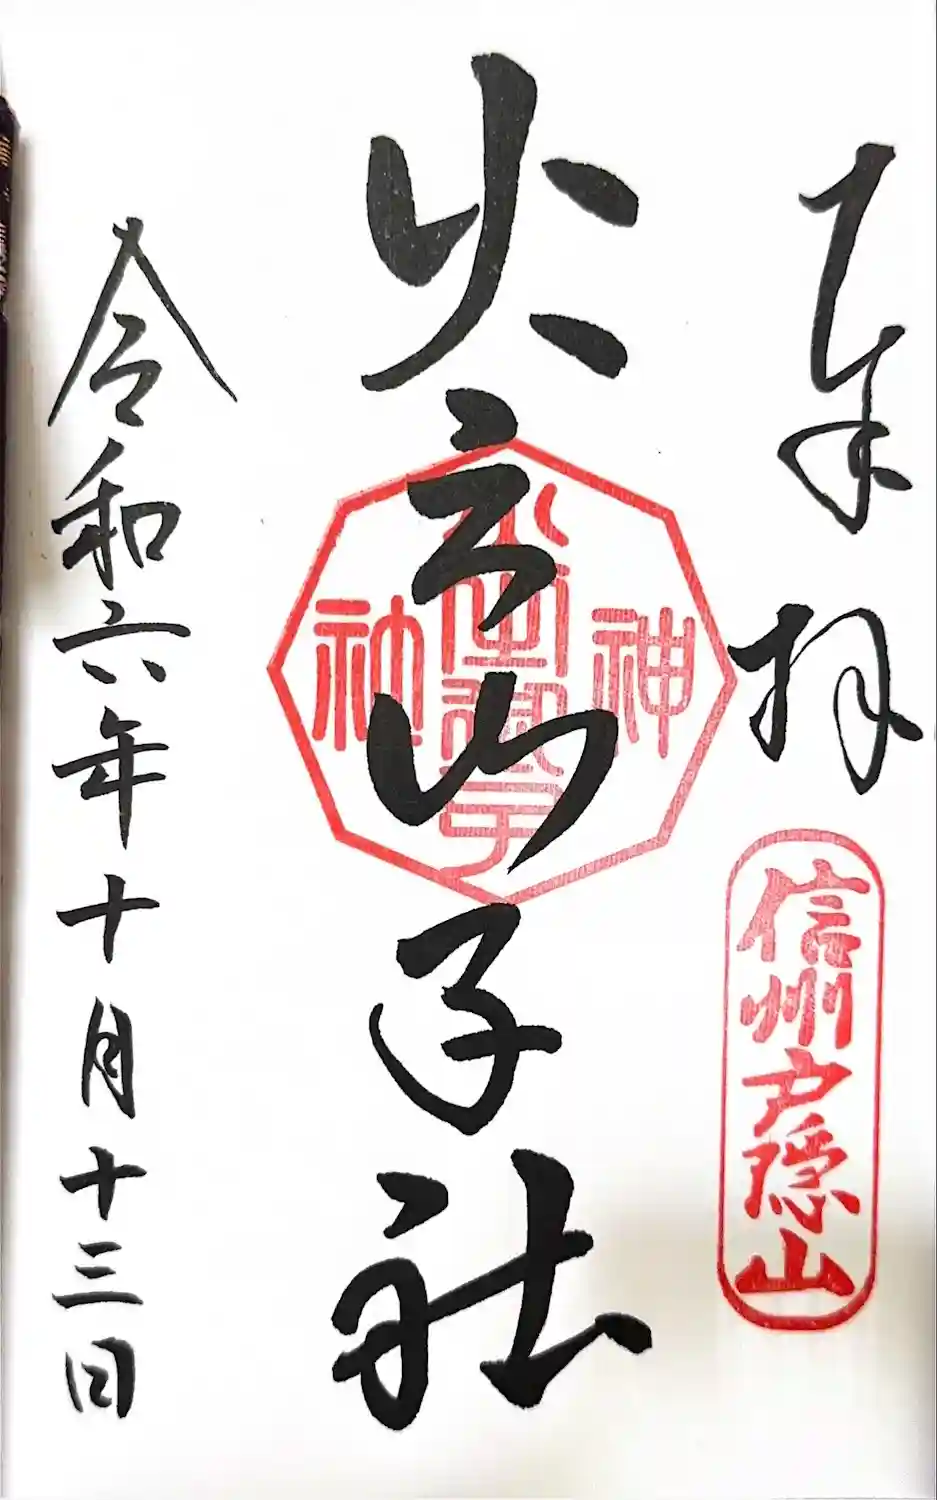 奉拝
信州戸隠山
火之御子社
神
火之御子
社
令和六年十月十三日